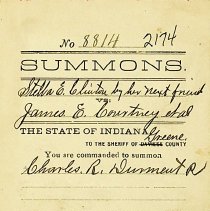 No 8814 2174
SUMMONS.
Stella E. Clinton by her next friend
VS.
James E. Courtney et al
THE STATE OF INDIANA, Greene
TO THE SHERIFF OF DAVIESS COUNTY
You are commanded to summon
Charles R. Durment